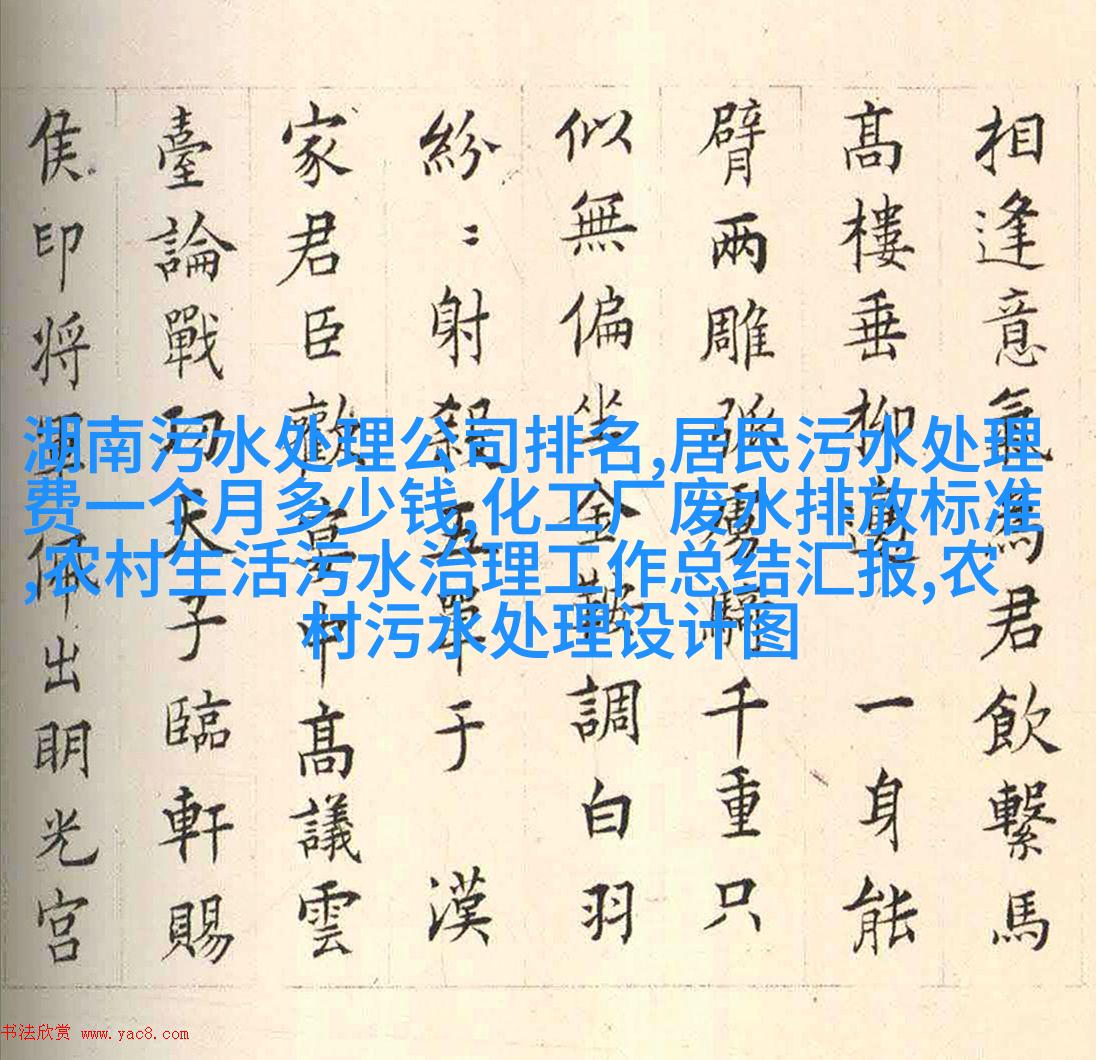 相逢意氣為君飲繫馬
髙樓垂柳邊 一身能
臂兩雕弧虜騎千重只
似無偏坐金鞍調白羽
紛〻射殺五單于 漢
家君臣歡宴中髙議雲
臺論戰功天子臨軒賜
侯印将軍佩出明光宮
湖南污水处理公司排名,居民污水处理
费一个月多少钱,化工厂废水排放标准
,农村生活污水治理工作总结汇报,农
村污水处理设计图
书法欣赏 www.yac8.com